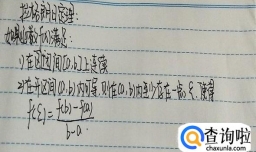 拉格朗日定理:
如果函数f(x)满足:
1)在闭区间[a,b]上连续
2)在开区间(a,b)内可导,则在(a,b)内至少存在一点ξ,使得
f'(ξ)=
f(b)-f(a)
b-a
查询啦
chaxunla.com